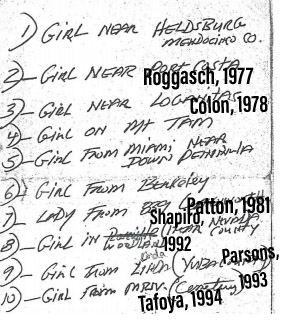 1) GIRL NEAR HELDSBURG
MENDOCINO CO.
2) - GIRL NEAR PORT COSTA
Roggasch, 1977
3) - GIRL NEAR LOGANITAS
Colon, 1978
4) - GIRL ON MT TAM
5) - GIRL FROM MIAMI NEAR
DOWN PENINSULA
6) - GIRL FROM BERKELEY
7) - LADY FROM
Patton, 1981
Shapiro,
1992
NEVADA
8) - GIRL IN (NEAR COUNTY
WOODLAND
9) - GIRL FROM LINDA (YUBA COUNTY)
Parsons,
1993
10) - GIRL FROM MRV. (Cemetery)
Tafoya, 1994